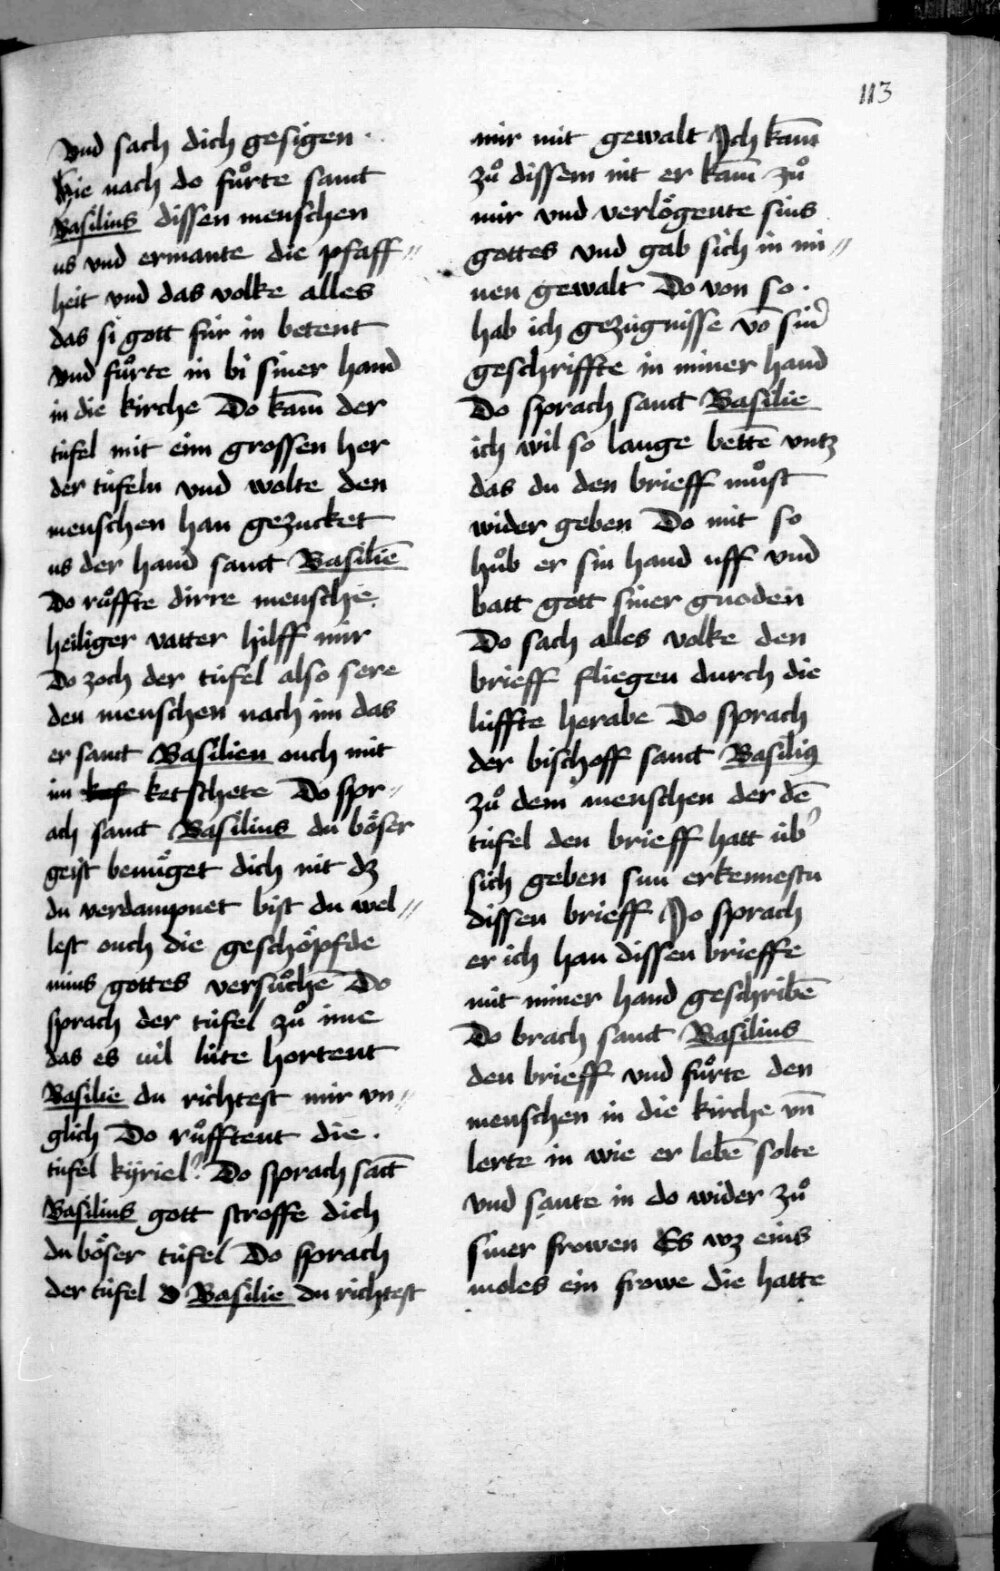 113
vnd sach dich gesigen ·
hie nach do fůrte sanct
Basilius dissen menschen
us vnd ermante die pfaff〃
heit vnd das volke alles
das si gott für in betent
vnd fůrte in bi siner hand
in die kirche Do kam̄ der
tüfel mit eim grossen her
der tüfeln vnd wolte den
menschen han gezucket
us der hand sanct Basiliē
Do růffte dirre mensche
heiliger vatter hilff mir
Do zoch der tüfel also sere
den menschen nach im das
er sanct Basilien ouch mit
im ketschete Do spr〃
ach sanct Basilius du böser
geist benůget dich nit dz
du verdampnet bist du wel〃
lest ouch die geschöpfde
mins gottes versůchē Do
sprach der tüfel zů ime
das es vil lüte hortent
Basilie du richtest mir vn〃
glich Do růfftent die ·
tüfel kÿriel? Do sprach sāct
Basilius gott stroffe dich
du böser tüfel Do sprach
der tüfel o Basilie du richtest
mir mit gewalt Jch kam̄
zů dissem nit er kam̄ zů
mir vnd verlögente sins
gottes vnd gab sich in mi〃
nen gewalt Do von so ·
hab ich gezügnisse vō sin͛
geschriffte in miner hand
Do sprach sanct Basilie
ich wil so lange bettē vntz
das du den brieff můst
wider geben Do mit so
hůb er sin hand uff vnd
batt gott siner gnoden
Do sach alles volke den
brieff fliegen durch die
lüffte herabe Do sprach
der bischoff sanct Basiliꝰ
zů dem menschen der dē
tüfel den brieff hatt üb͛
sich geben sun erkennestu
dissen brieff Jo sprach
er ich han dissen brieffe
mit miner hand geschribē
Do brach sanct Basilius
den brieff vnd fůrte den
menschen in die kirche vn̄
lerte in wie er lebē solte
vnd sante in do wider zů
siner frowen Es wz eins
moles ein frowe die hatte